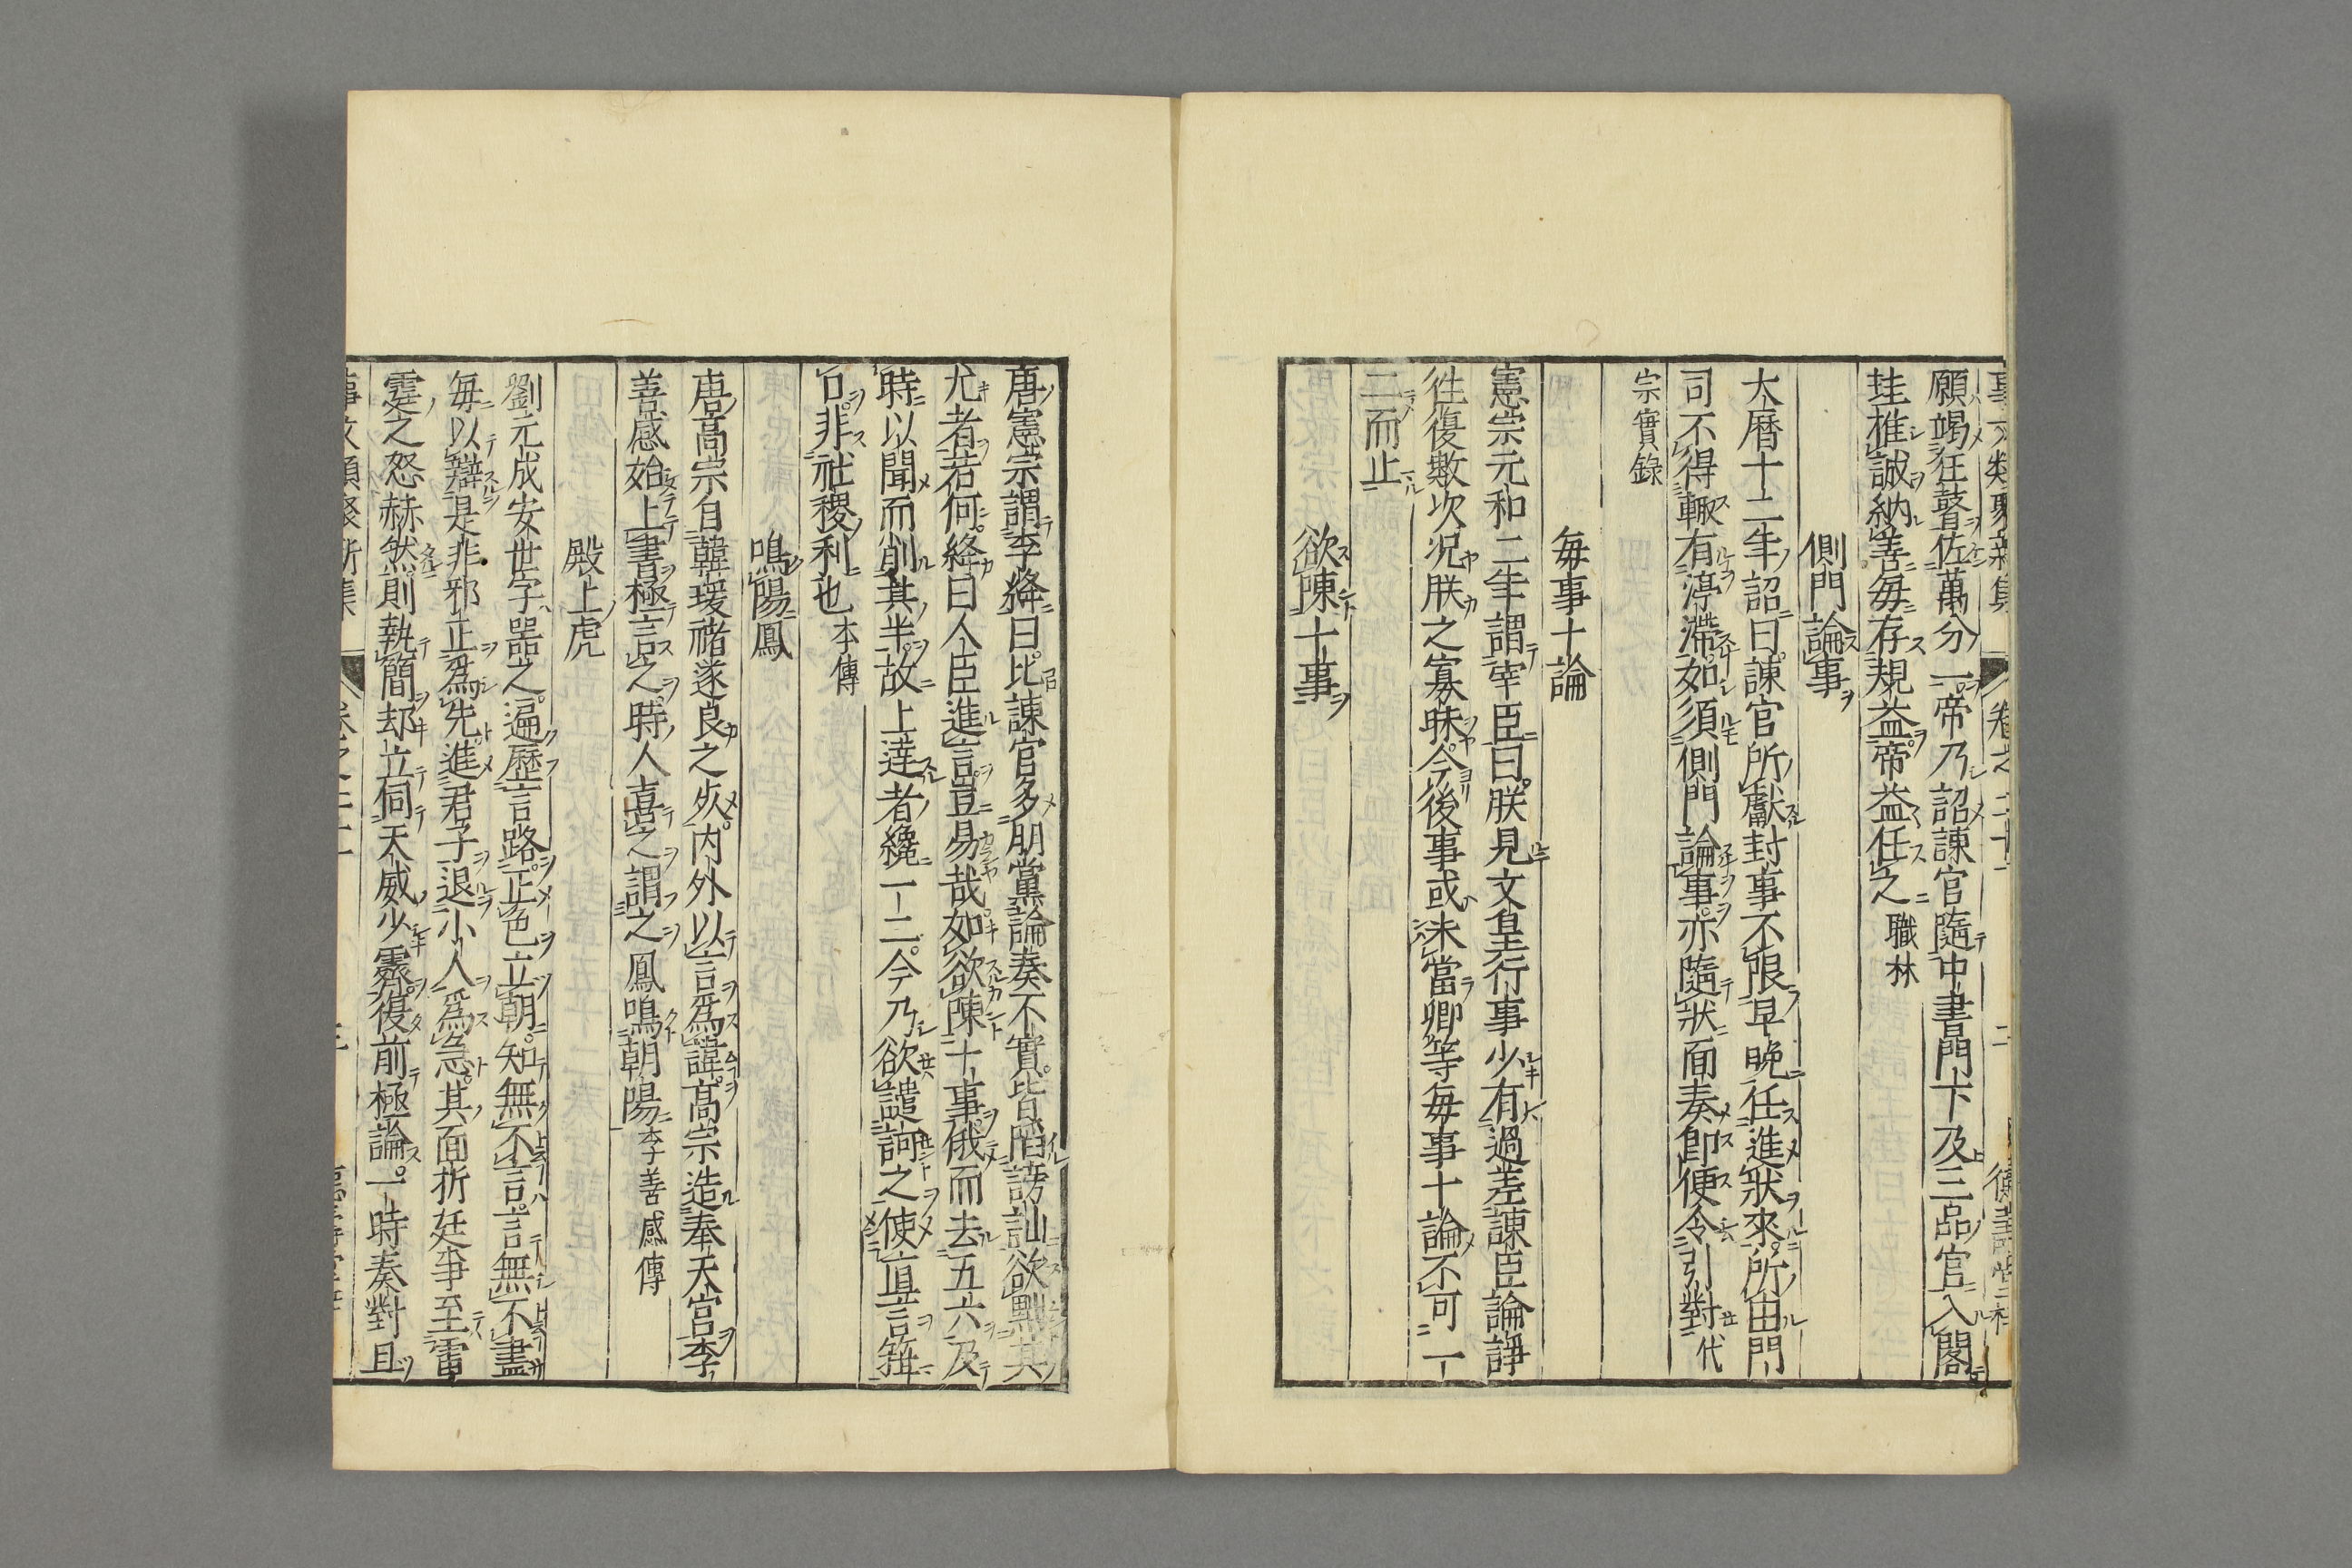 願竭狂瞽佐萬分一帝乃詔諫官隨中書門下及三品官入閣
珪推誠納善每存規益帝益任之職林
側門論事
大曆十二年詔曰諫官所獻封事不限早晚任進狀來所由門
司不得輙有渟滯如須側門論事亦隨狀面奏卽便令引對代
宗實錄
每事十論
憲宗元和二年謂宰臣曰朕見文皇行事少有過差諫臣論諍
徃復數次况朕之寡昧今後事或未當卿等每事十論不可一
二而止
欲陳十事
唐憲宗謂李絳曰比諫官多朋黨論奏不實皆陷謗訕欲黜其
尤者若何絳曰人臣進言豈易哉如欲陳十事俄而去五六及
時以聞而削其半故上達者纔一二今乃欲譴訶之使直言箝
口非社稷利也本傳
鳴陽鳳
唐高宗自韓瑗禇遂良之死內外以言爲諱高宗造奉天宮李
善感始上書極言之時人喜之謂之鳳鳴朝陽李善感傳
殿上虎
劉元成安世字噐之遍歷言路正色立朝知無不言言無不盡
每以辯是非邪正爲先進君子退小人爲急其面折廷爭至雷
霆之怒赫然則執簡却立伺天威少霽復前極論一時奏對且